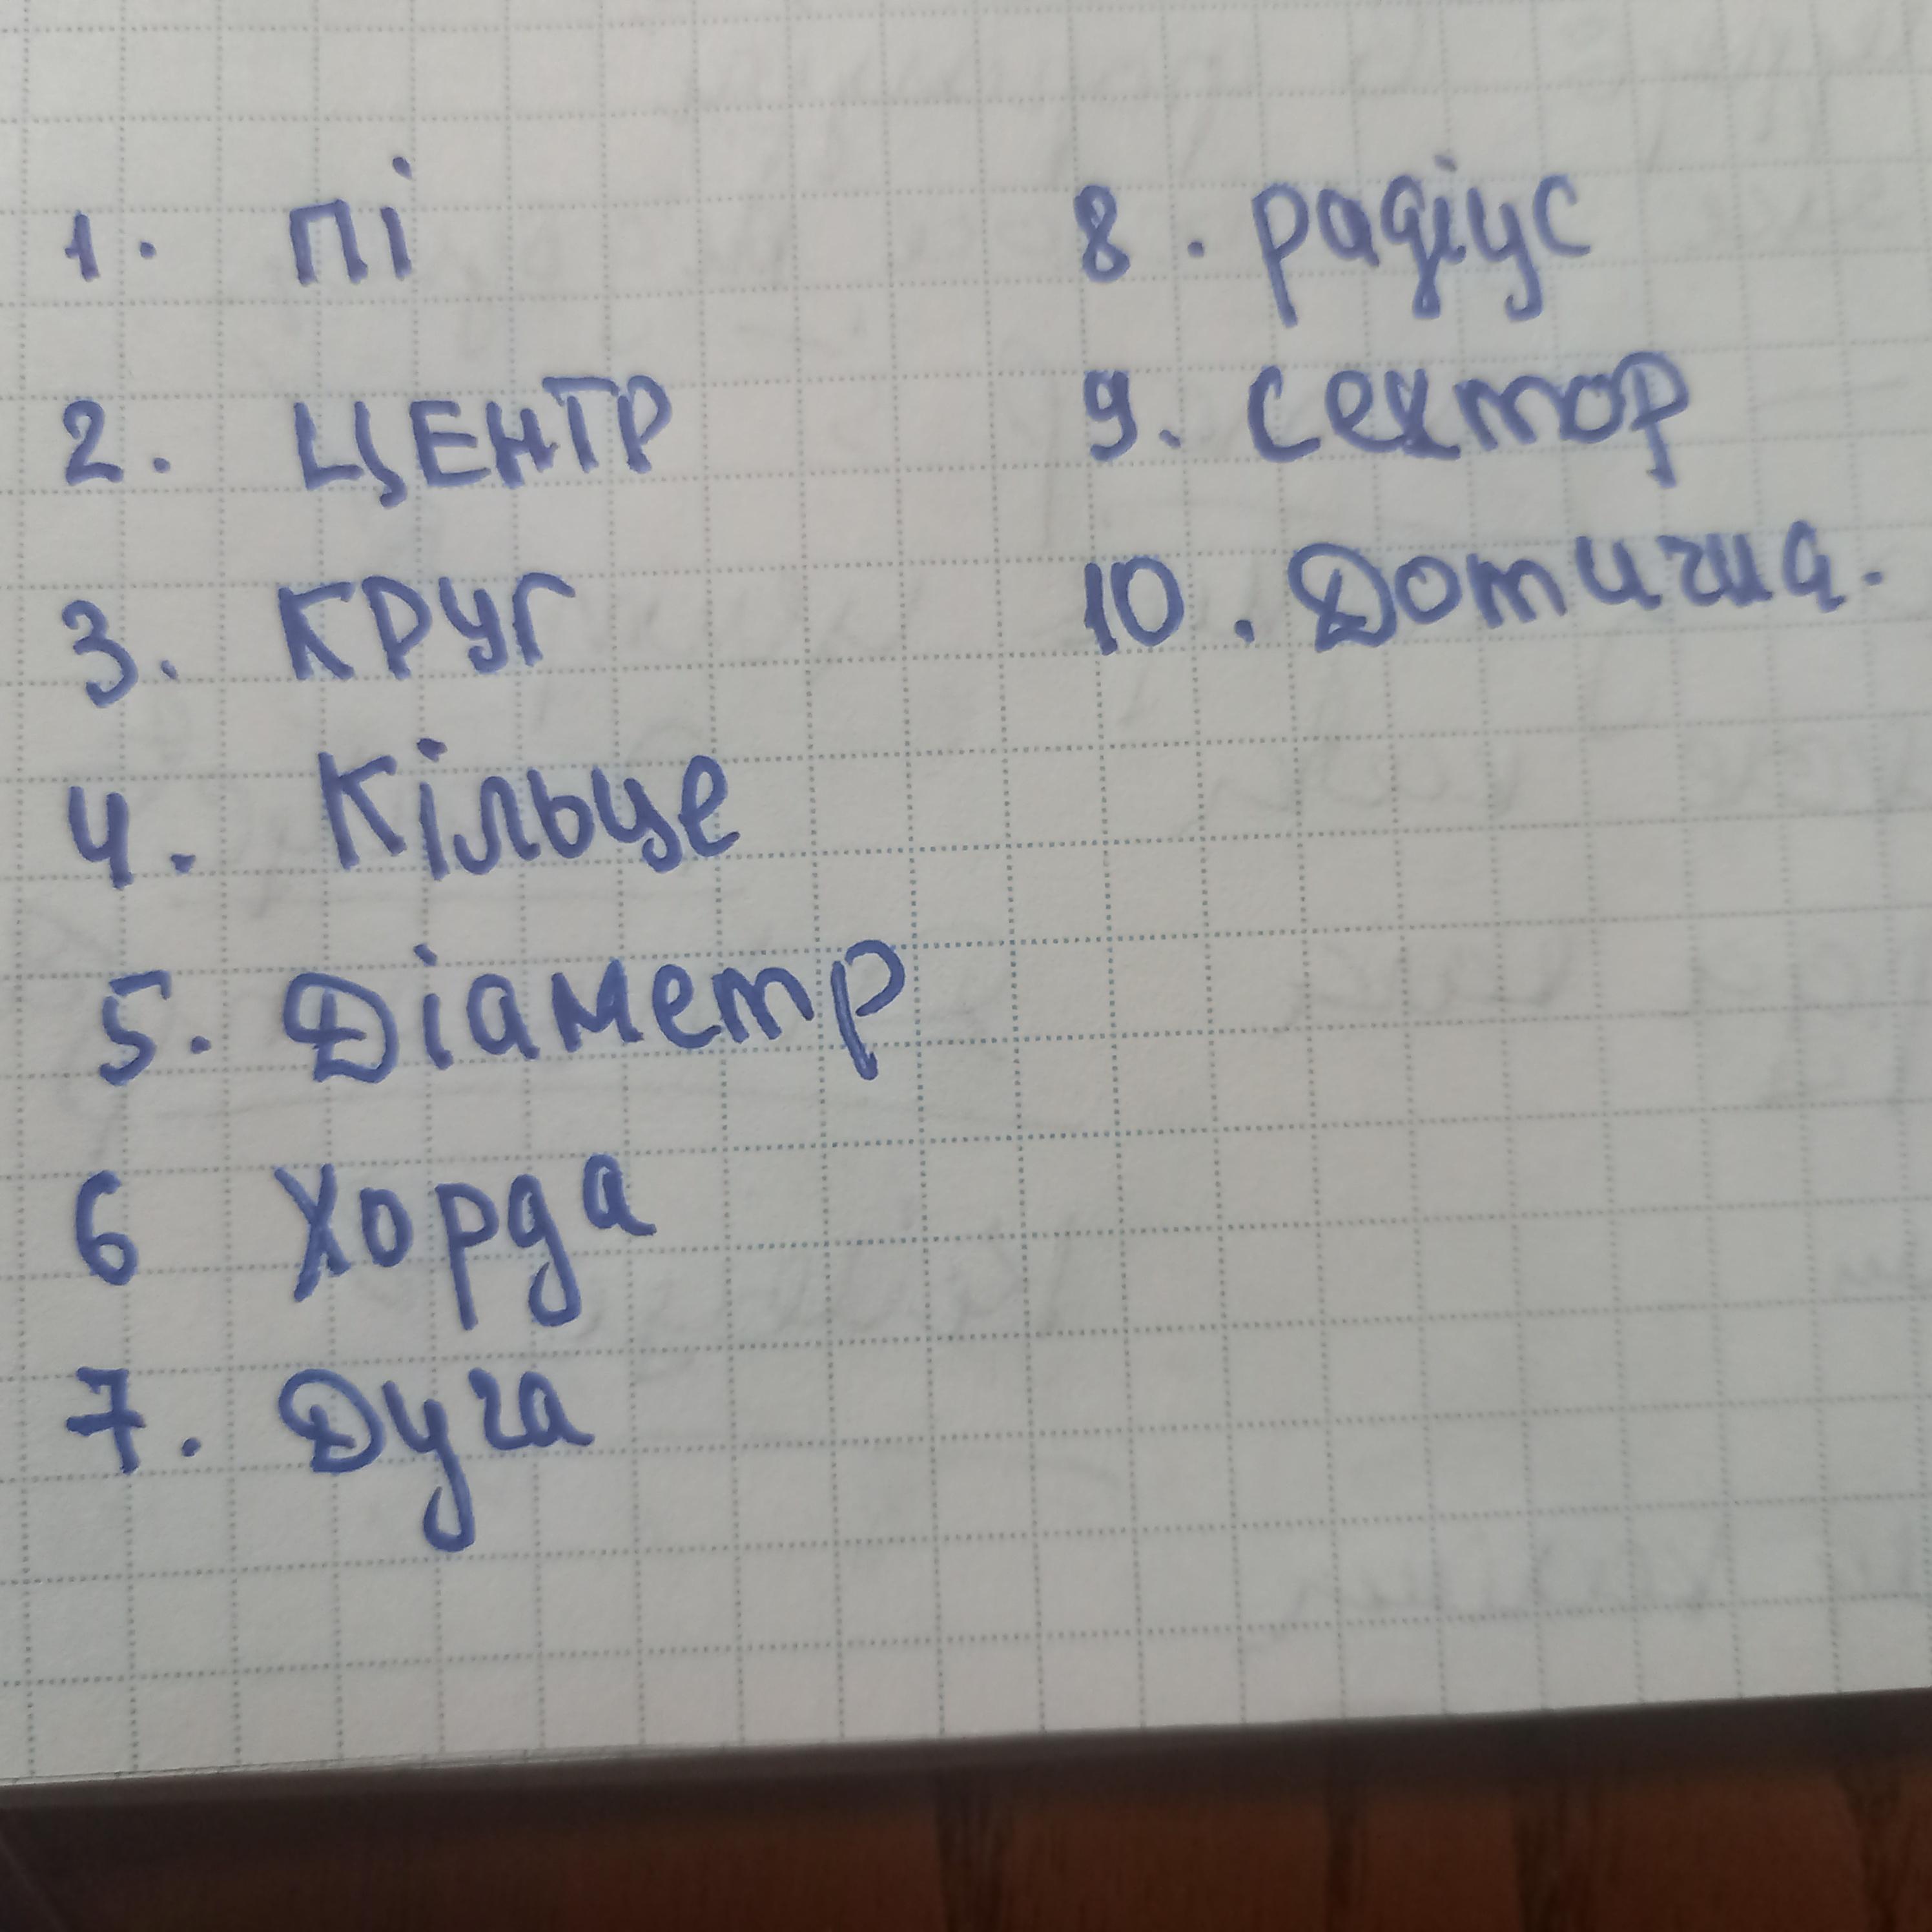 1. пі
2. ЦЕНТР
3. КРУГ
4. Кільце
5. Діаметр
6 Хорда
7. Дуга
8. радіус
9. сектор
10. Дотична.